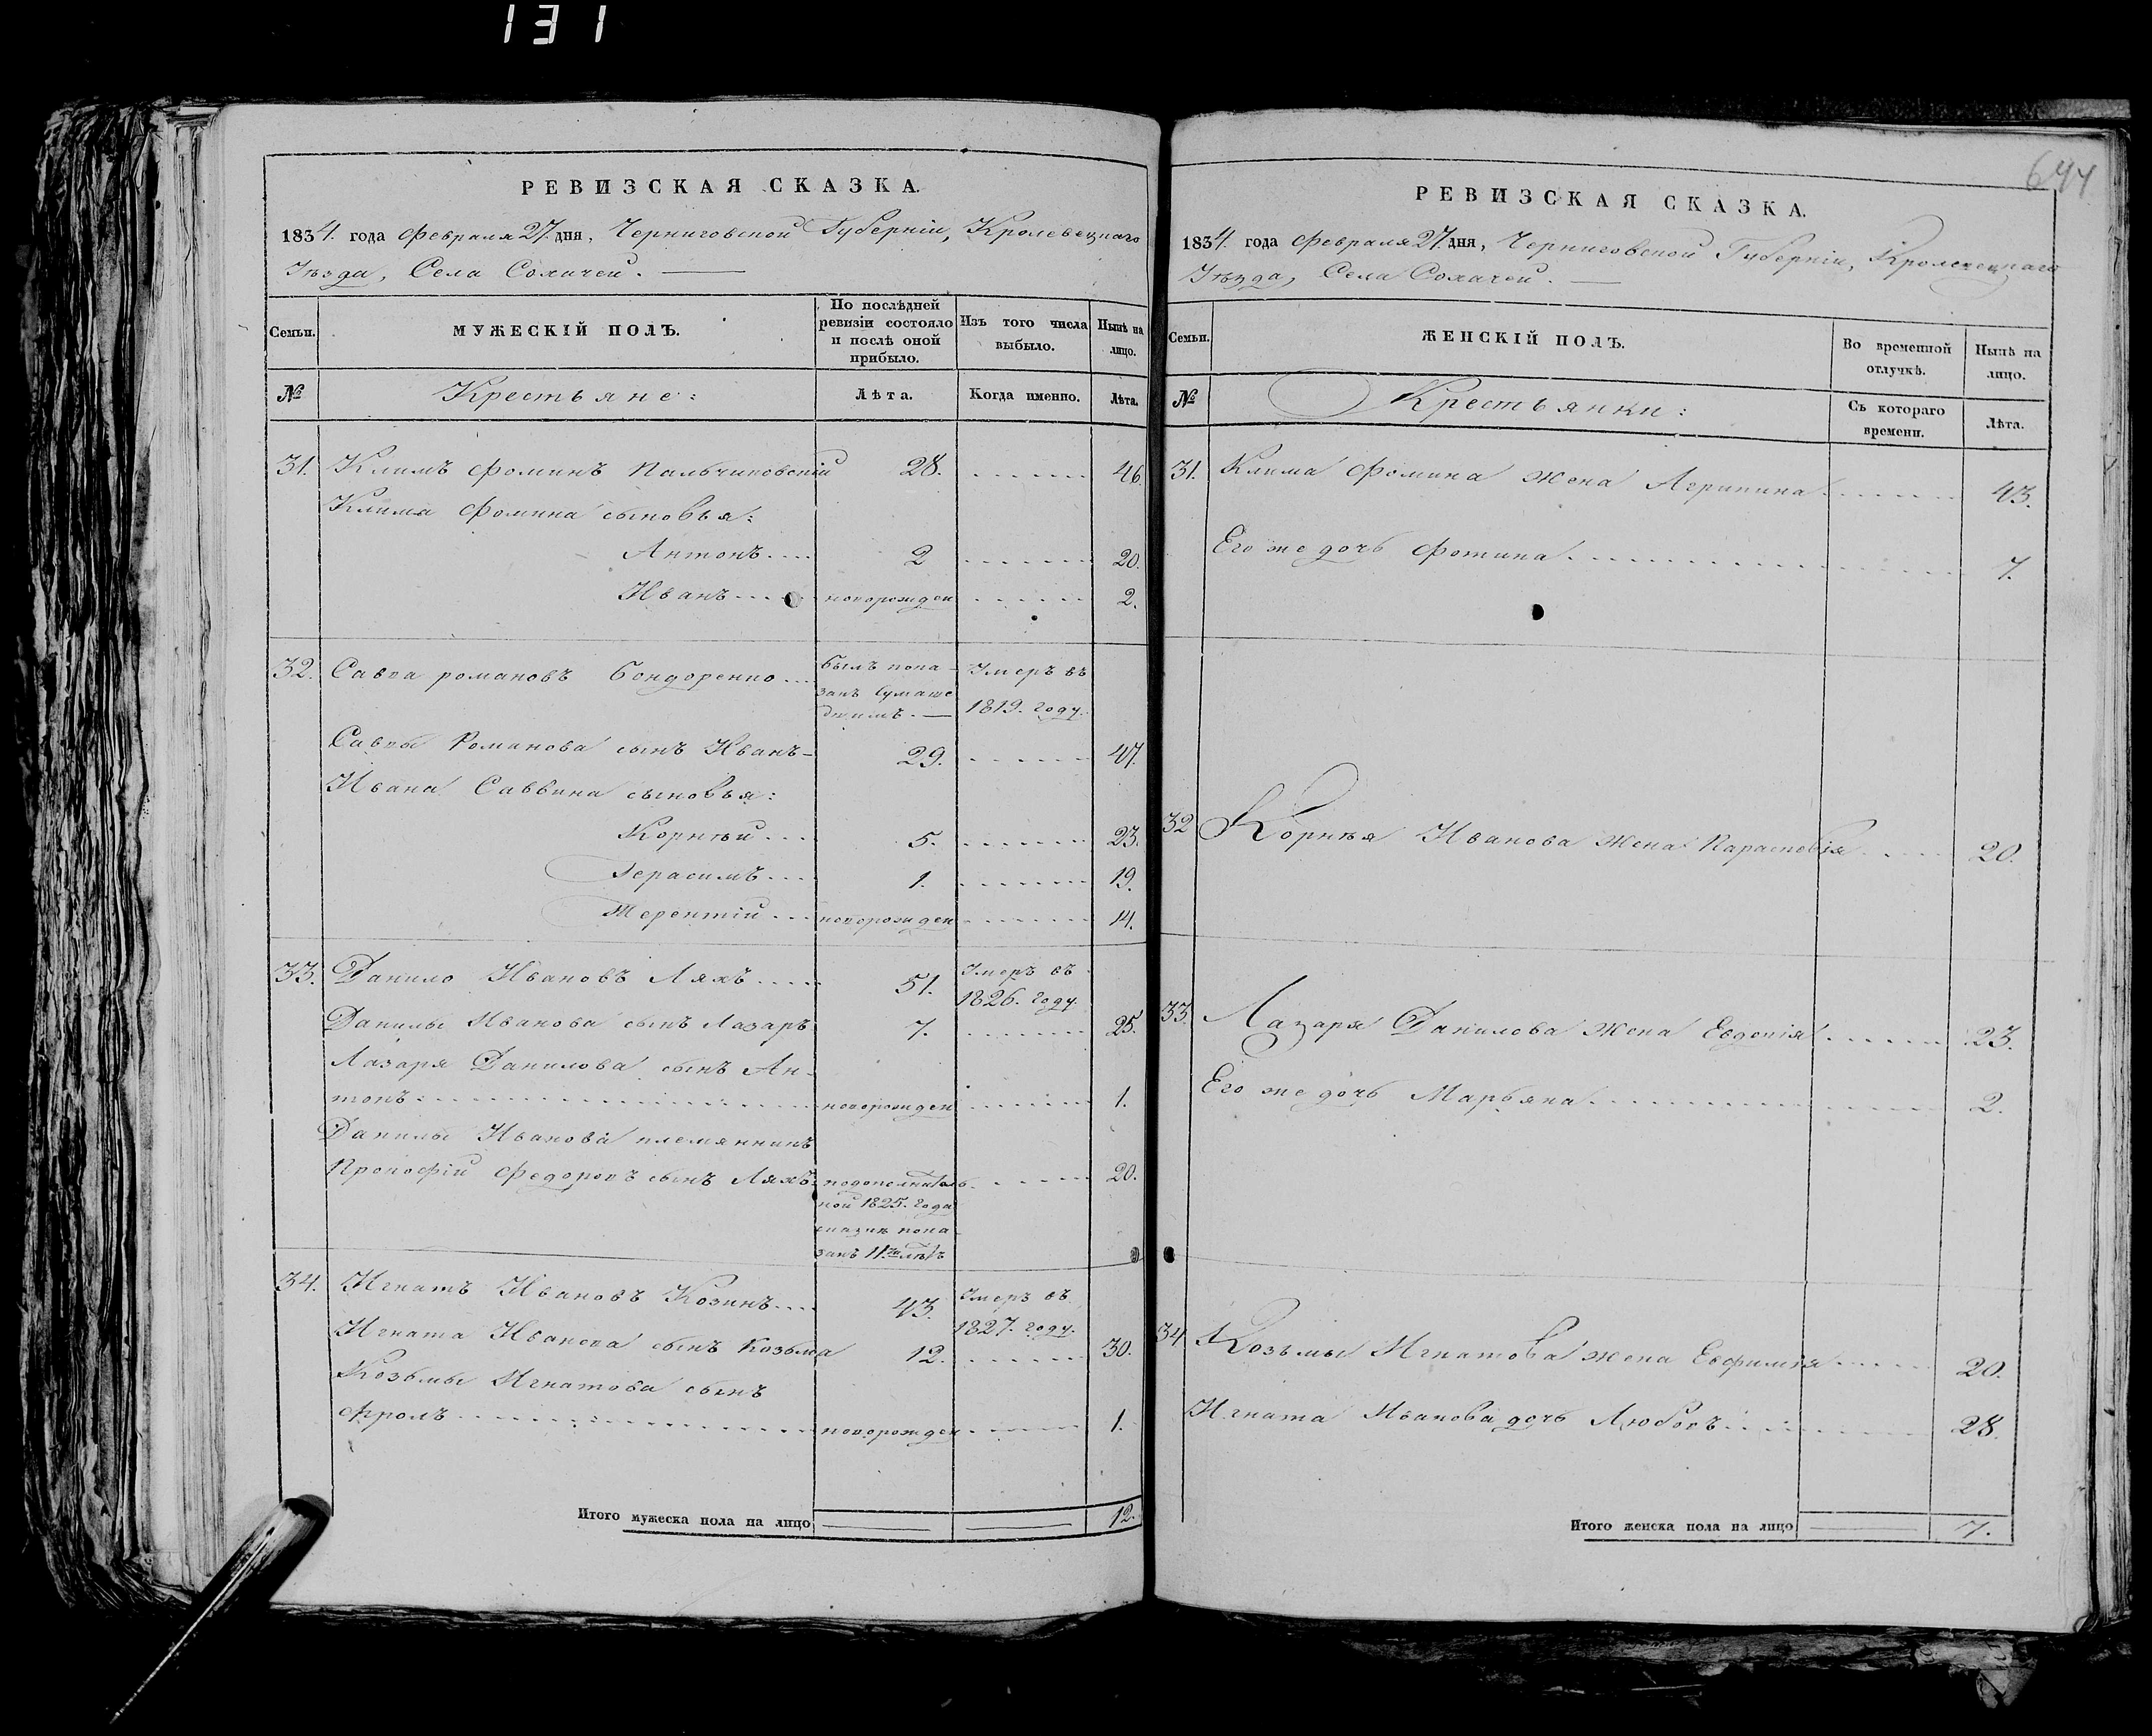 131
РЕВИЗСКАЯ СКАЗКА.
1834. года Февраля 27. дня, Черниговской Губерніи, Кролевецкаго
Уѣзда, Села Сохачей.
Семьи. МУЖЕСКІЙ ПОЛЪ. По послѣдней ревизіи состояло и послѣ оной прибыло. Изъ того числа выбыло. Нынѣ на лицо.
№ Крестьяне: Лѣта. Когда именно. Лѣта.
31. Климъ Фоминъ Пальчиковскій 28. 46.
Клима Фомина сыновья:
Антонъ.... 2 20.
Иванъ.... новорожден 2.
32. Савка романовъ Бондоренко... былъ пока-
занъ Сумаше
дшимъ. — Умеръ въ
1819. году.
Савки Романова сынъ Иванъ- 29. 47.
Ивана Саввина сыновья:
Корнѣй... 5. 23.
Герасимъ... 1. 19.
Терентій... новорожден 14.
33. Данило Ивановъ Ляхъ..... 51. Умеръ въ
1826. году.
Данилы Иванова сынъ Лазарь 7. 25.
Лазаря Данилова сынъ Ан-
тонъ новорожден 1.
Данилы Иванова племянникъ
Прокофій Федоровъ сынъ Ляхъ. 20.
ной 1825. года
сказкѣ пока-
занъ 11ти лѣтъ
34. Игнатъ Ивановъ Козинъ.... 43. Умеръ въ
1827. году.
Игната Иванова сынъ Козьма 12. 30.
Козьмы Игнатова сынъ
Фролъ новорожден 1.
Итого мужеска пола на лицо 12.
644
РЕВИЗСКАЯ СКАЗКА.
1834. года Февраля 27. дня, Черниговской Губерніи, Кролевецкаго
Уѣзда, Села Сохачей.
Семьи. ЖЕНСКІЙ ПОЛЪ. Во временной отлучкѣ. Нынѣ на лицо.
№ Крестьянки: Съ котораго времени. Лѣта.
31. Клима Фомина жена Агрипина 43.
Его же дочь Фотина 7.
32 Корнѣя Иванова жена Параскевія 20.
33. Лазаря Данилова жена Евдокія 23.
Его же дочь Марьяна 2.
34 Козьмы Игнатова жена Евфимія 20.
Игната Иванова дочь Любовъ 28.
Итого женска пола на лицо 7.